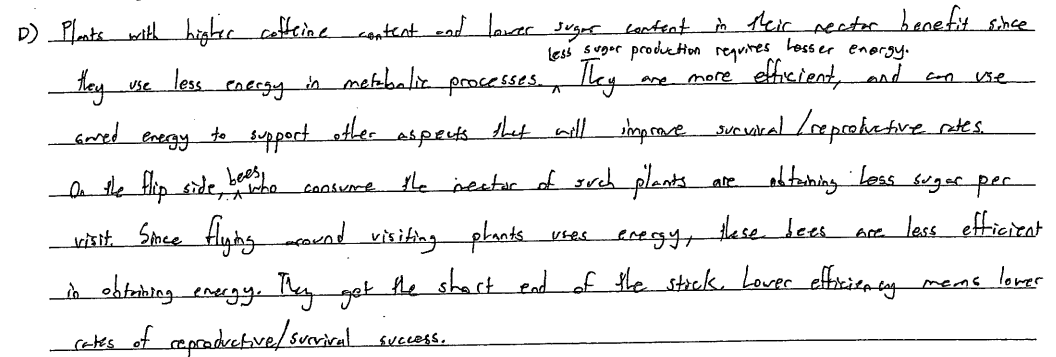 D) Plants with higher caffeine content and lower sugar content in their nectar benefit since
less sugar production requires lesser energy.
they use less energy in metabolic processes. ^ They are more efficient, and can use
saved energy to support other aspects that will improve survival/reproductive rates.
On the flip side, ^bees, who consume the nectar of such plants are obtaining less sugar per
visit. Since flying around visiting plants uses energy, these bees are less efficient
in obtaining energy. They get the short end of the stick. Lower efficiency means lower
rates of reproductive/survival success.